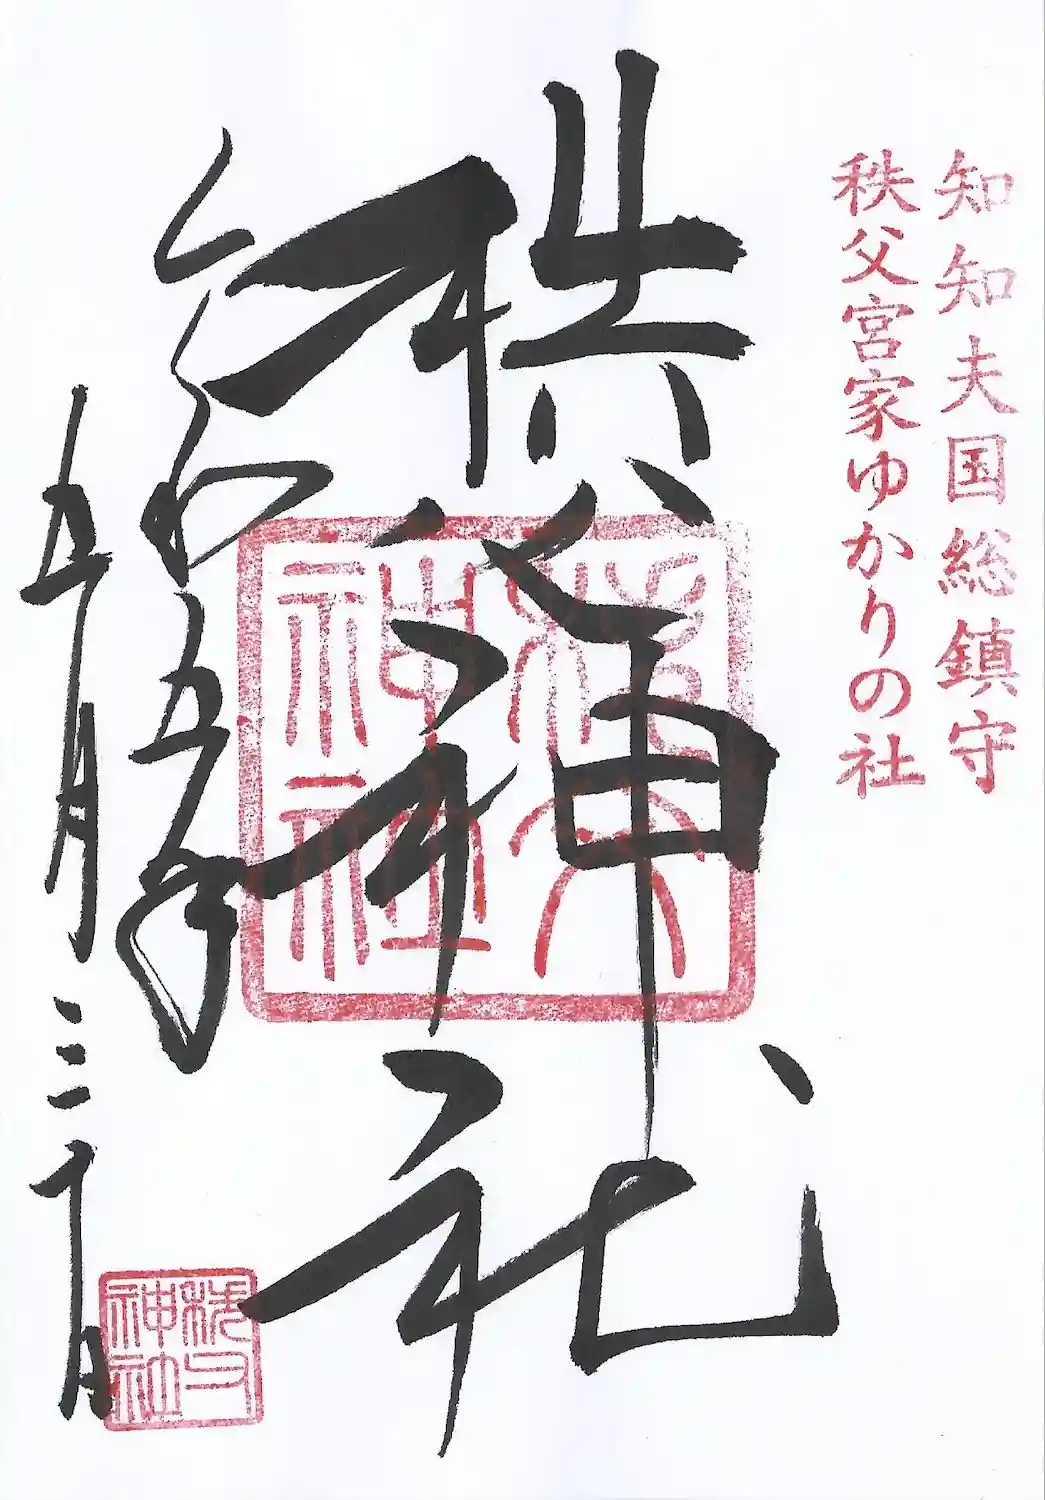 知知夫国総鎮守
秩父宮家ゆかりの社
秩父神社
令和五年
五月三十日
秩父神社
秩父神社